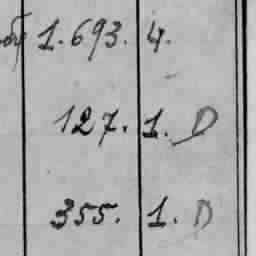 1.693. 4.
127. 1. D
355. 1. D